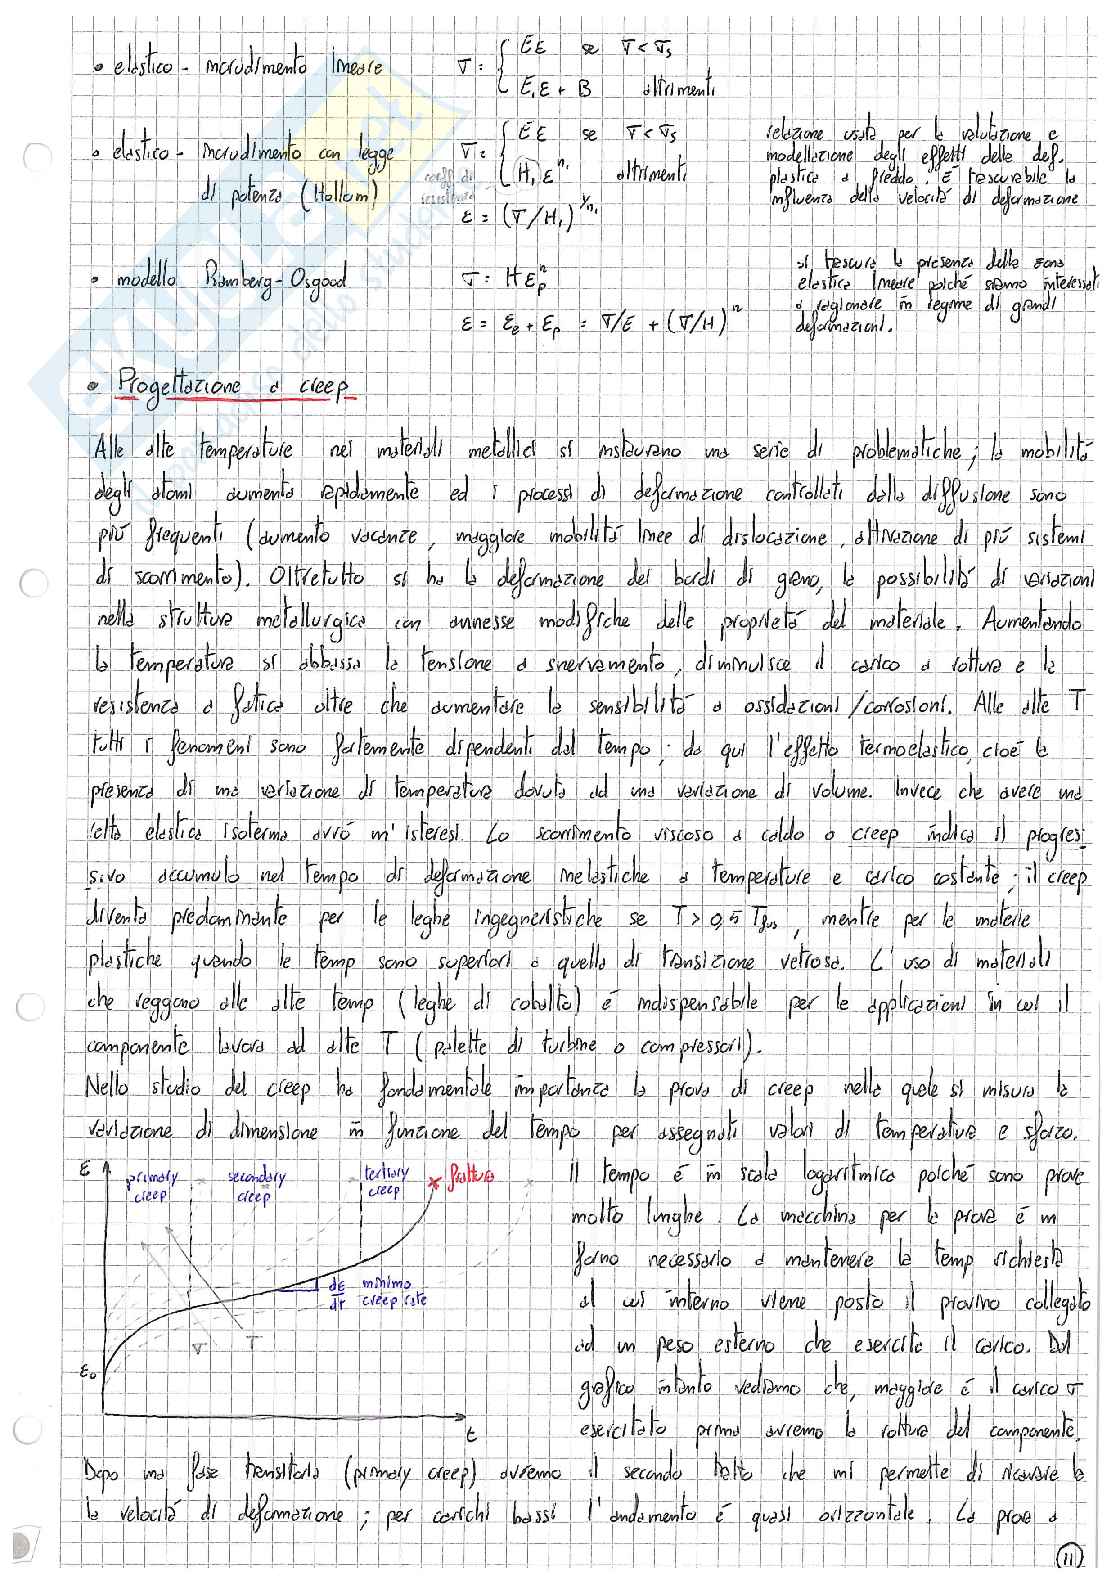 • elastico - incrudimento lineare σ = { Eε se σ < σs
E₁ε + B altrimenti
• elastico - incrudimento con legge di potenza (Hollom) σ = { Eε se σ < σs
H₁ ε^n₁ altrimenti
coeff di resistenza
ε = (σ/H₁)^1/n₁
relazione usata per la valutazione e
modellazione degli effetti delle def.
plastica a freddo. È trascurabile la
influenza della velocità di deformazione
• modello Ramberg-Osgood σ = H εp^n
ε = εe + εp = σ/E + (σ/H)^1/n
si trascura la presenza della zona
elastica lineare poiché siamo interessati
a ragionare in regime di grandi
deformazioni.
• Progettazione a creep
Alle alte temperature nei materiali metallici si instaurano una serie di problematiche; la mobilità
degli atomi aumenta rapidamente ed i processi di deformazione controllati dalla diffusione sono
più frequenti (aumento vacanze, maggiore mobilità linee di dislocazione, attivazione di più sistemi
di scorrimento). Oltretutto si ha la deformazione dei bordi di grano, la possibilità di variazioni
nella struttura metallurgica con annesse modifiche delle proprietà del materiale. Aumentando
la temperatura si abbassa la tensione a snervamento, diminuisce il carico a rottura e la
resistenza a fatica oltre che aumentare la sensibilità a ossidazioni/corrosioni. Alle alte T
tutti i fenomeni sono fortemente dipendenti dal tempo; da qui l'effetto termoelastico, cioè la
presenza di una variazione di temperatura dovuta ad una variazione di volume. Invece che avere una
retta elastica isoterma avrò un'isteresi. Lo scorrimento viscoso a caldo o creep indica il progres-
sivo accumulo nel tempo di deformazione inelastiche a temperature e carico costante; il creep
diventa predominante per le leghe ingegneristiche se T > 0,5 Tfus, mentre per le materie
plastiche quando le temp sono superiori a quella di transizione vetrosa. L'uso di materiali
che reggono alle alte temp (leghe di cobalto) è indispensabile per le applicazioni in cui il
componente lavora ad alte T (palette di turbine o compressori).
Nello studio del creep ha fondamentale importanza la prova di creep nella quale si misura la
variazione di dimensione in funzione del tempo per assegnati valori di temperatura e sforzo.
ε
primary creep
secondary creep
tertiary creep
frattura
dε/dt minimo creep rate
σ
T
ε₀
t
il tempo è in scala logaritmica poiché sono prove
molto lunghe. La macchina per la prova è un
forno necessario a mantenere la temp richiesta
al cui interno viene posto il provino collegato
ad un peso esterno che esercita il carico. Dal
grafico intanto vediamo che, maggiore è il carico σ
esercitato prima avremo la rottura del componente.
Dopo una fase transitoria (primary creep) avremo il secondo tratto che mi permette di ricavare la
la velocità di deformazione; per carichi bassi l'andamento è quasi orizzontale. La prova a
11